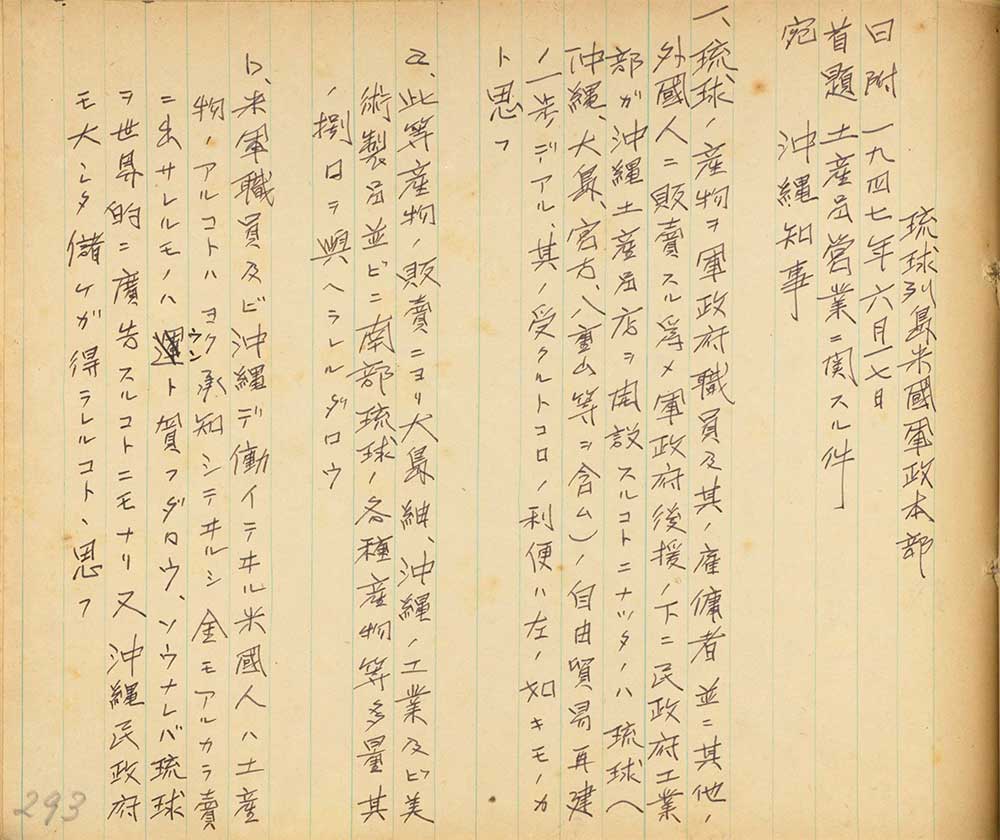 琉球列島米國軍政本部
日附 一九四七年六月一七日
首題 土産品営業ニ関スル件
宛 沖縄知事
一、琉球ノ産物ヲ軍政府職員及其ノ雇傭者並ニ其他ノ
外國人ニ販賣スル為メ軍政府後援ノ下ニ民政府工業
部ガ沖縄土産品店ヲ開設スルコトニナッタノハ琉球(
沖縄、大島、宮古、八重山等ヲ含ム)ノ自由貿易再建
ノ一歩デアル、其ノ受クルトコロノ利便ハ左ノ如キモノカ
ト思フ
a、此等産物ノ販賣ニヨリ大島紬、沖縄ノ工業及ビ美
術製品並ビニ南部琉球ノ各種産物等多量其
ノ捌口ヲ與ヘラレルダロウ
b、米軍職員及ビ沖縄デ働イテヰル米國人ハ土産
物ノアルコトハヨク承知シテヰルシ金モアルカラ賣
ニ出サレルモノハウント買フダロウ、ソウナレバ琉球
ヲ世界的ニ廣告スルコトニモナリ又沖縄民政府
モ大シタ儲ケガ得ラレルコトヽ思フ
293